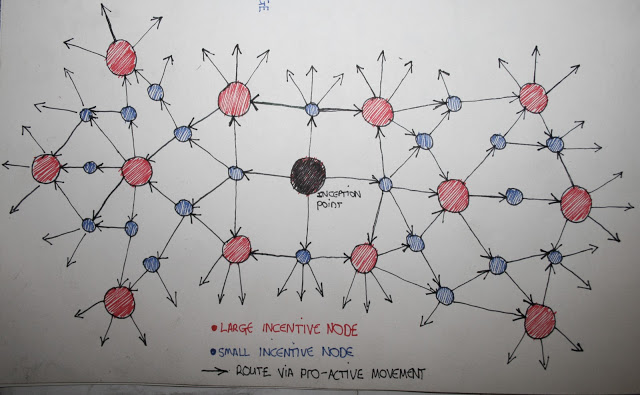 INCEPTION
POINT
LARGE INCENTIVE NODE
SMALL INCENTIVE NODE
ROUTE VIA PRO-ACTIVE MOVEMENT